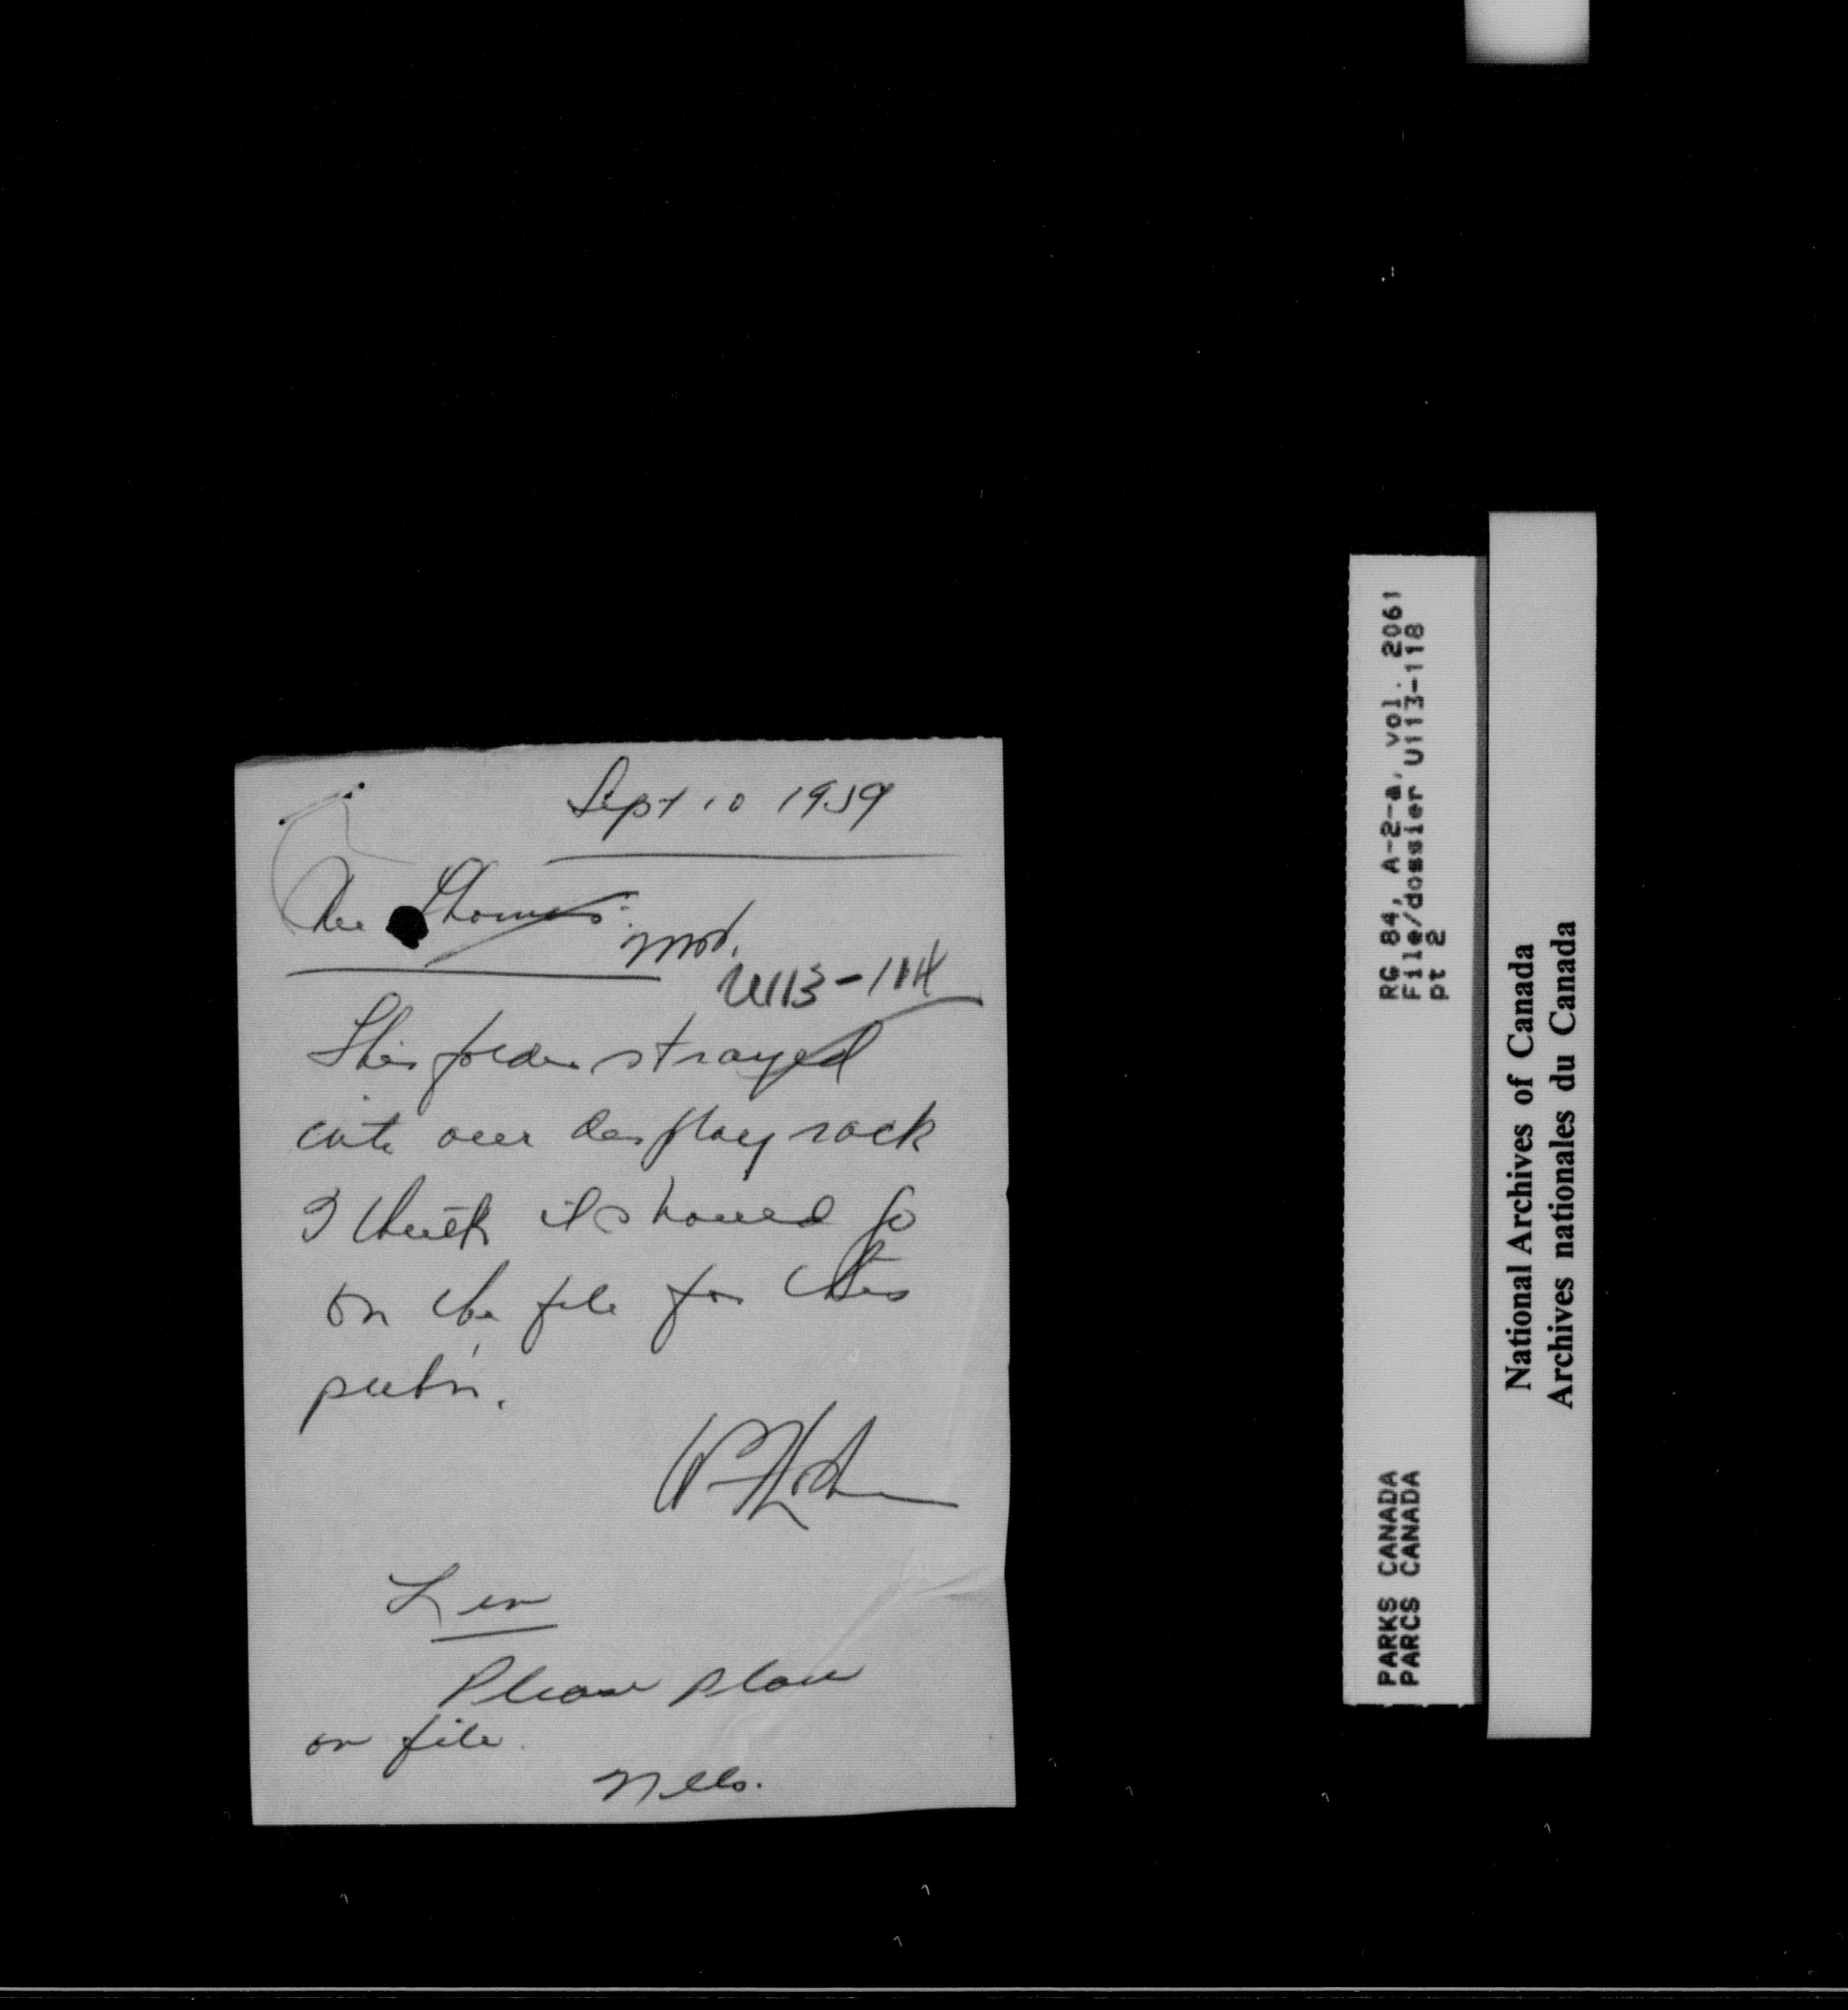 Sept 10 1959
Mr Thomas
U113-114
This folder strayed
into our display rack
I think it should go
on the file for this
pub'n.
Len
Please place
on file.
RG 84, A-2-a, vol. 2061
File/dossier U113-118
pt 2
PARKS CANADA
PARCS CANADA
National Archives of Canada
Archives nationales du Canada